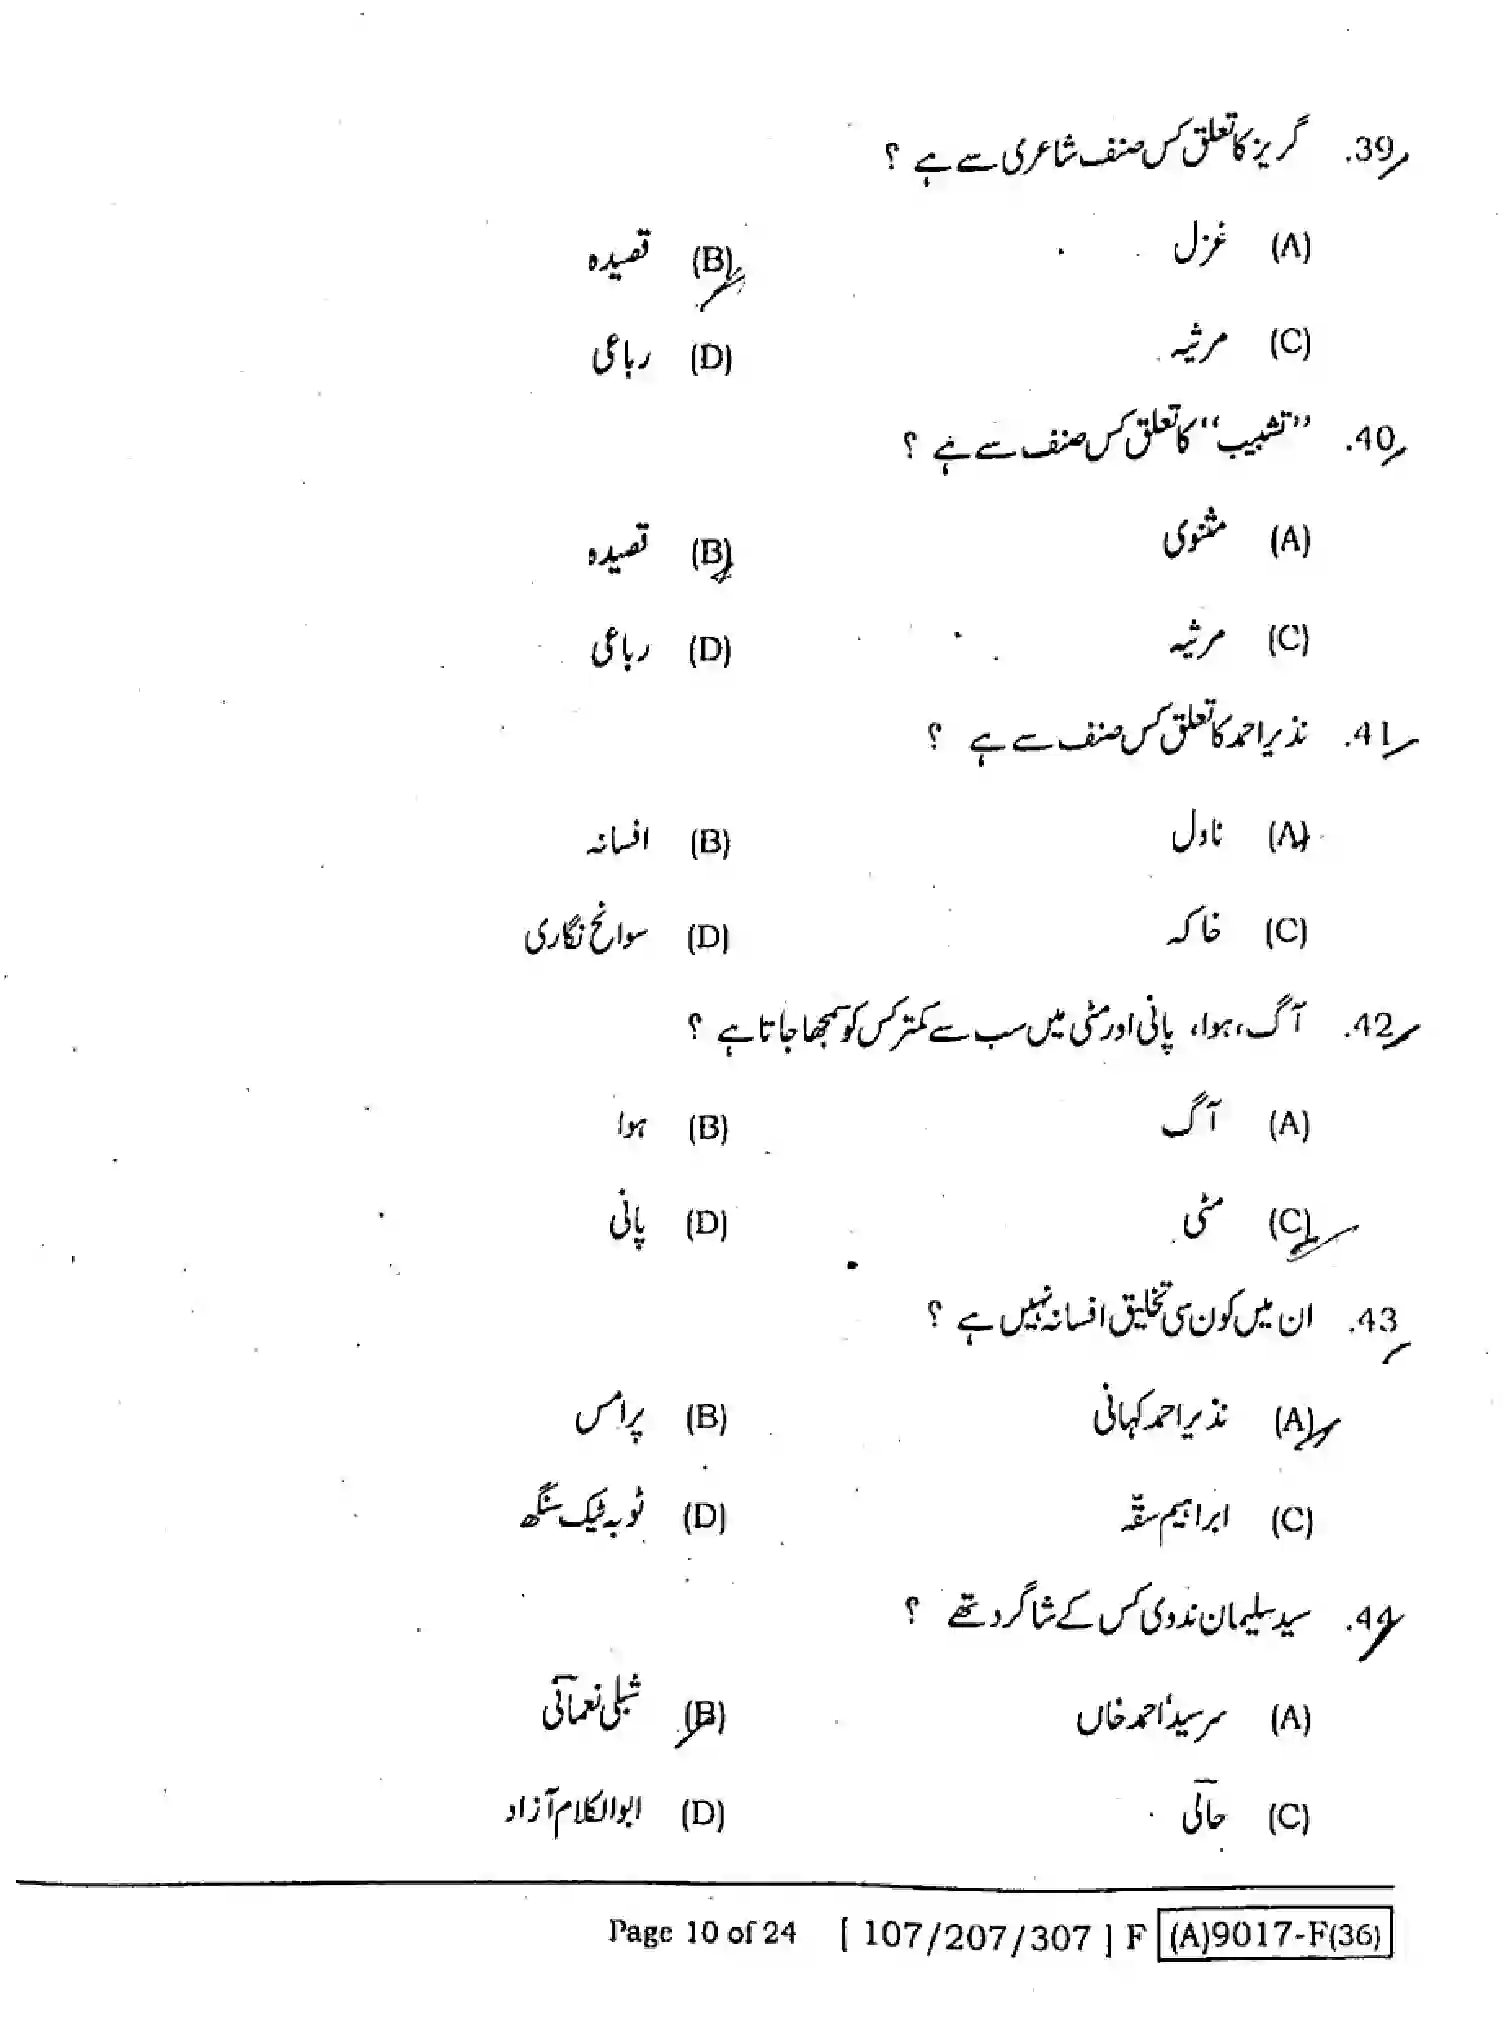 39. گریز کا تعلق کس صنف شاعری سے ہے ؟
(A) غزل (B) قصیدہ
(C) مرثیہ (D) رباعی
40. ’’تشبیب‘‘ کا تعلق کس صنف سے ہے ؟
(A) مثنوی (B) قصیدہ
(C) مرثیہ (D) رباعی
41. نذیر احمد کا تعلق کس صنف سے ہے ؟
(A) ناول (B) افسانہ
(C) خاکہ (D) سوانح نگاری
42. آگ، ہوا، پانی اور مٹی میں سب سے کمتر کس کو سمجھا جاتا ہے ؟
(A) آگ (B) ہوا
(C) مٹی (D) پانی
43. ان میں کون سی تخلیق افسانہ نہیں ہے ؟
(A) نذیر احمد کہانی (B) پرامس
(C) ابراہیم سقہ (D) ٹوبہ ٹیک سنگھ
44. سید سلیمان ندوی کس کے شاگرد تھے ؟
(A) سرسید احمد خاں (B) شبلی نعمانی
(C) حالی (D) ابوالکلام آزاد
Page 10 of 24 [ 107/207/307 ] F (A)9017-F(36)